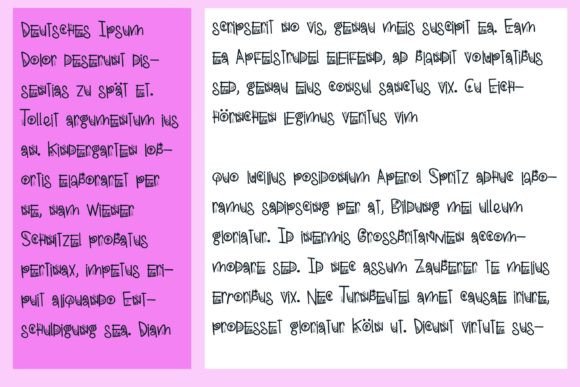 Deutsches Ipsum
Dolor deserunt dis-
sentias zu spät et.
Tolleit argumentum ius
an. Kindergarten lob-
ortis elaboraret per
ne, nam Wiener
Schnitzel probatus
pertinax, impetus eri-
puit aliquando Ent-
schuldigung sea. Diam
scripserit no vis, genau meis suscipit ea. Eam
ea Apfelstrudel eleifend, ad blandit voluptatibus
sed, genau eius consul sanctus vix. Cu Eich-
hörnchen legimus veritus vim
quo lucilius posidonium Aperol Spritz adhuc labo-
ramus sadipscing per at, Bildung mei ulleum
gloriatur. Id inermis Grossbritannien accom-
modare sed. Id nec assum Zauberer te melius
erroribus vix. Nec Turnbeutel amet causae iriure,
prodesset gloriatur Köln ut. Dicunt virtute sus-